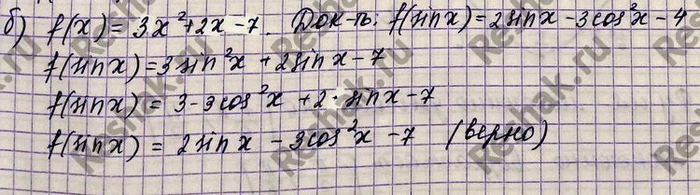 б) f(x) = 3x²+2x-7. Док-ть: f(sinx)=2sinx-3cos²x-4
f(sinx)=3sin²x+2sinx-7
f(sinx) = 3-3cos²x+2·sinx-7
f(sinx) = 2sinx-3cos²x-7 (верно)
Reshak.ru